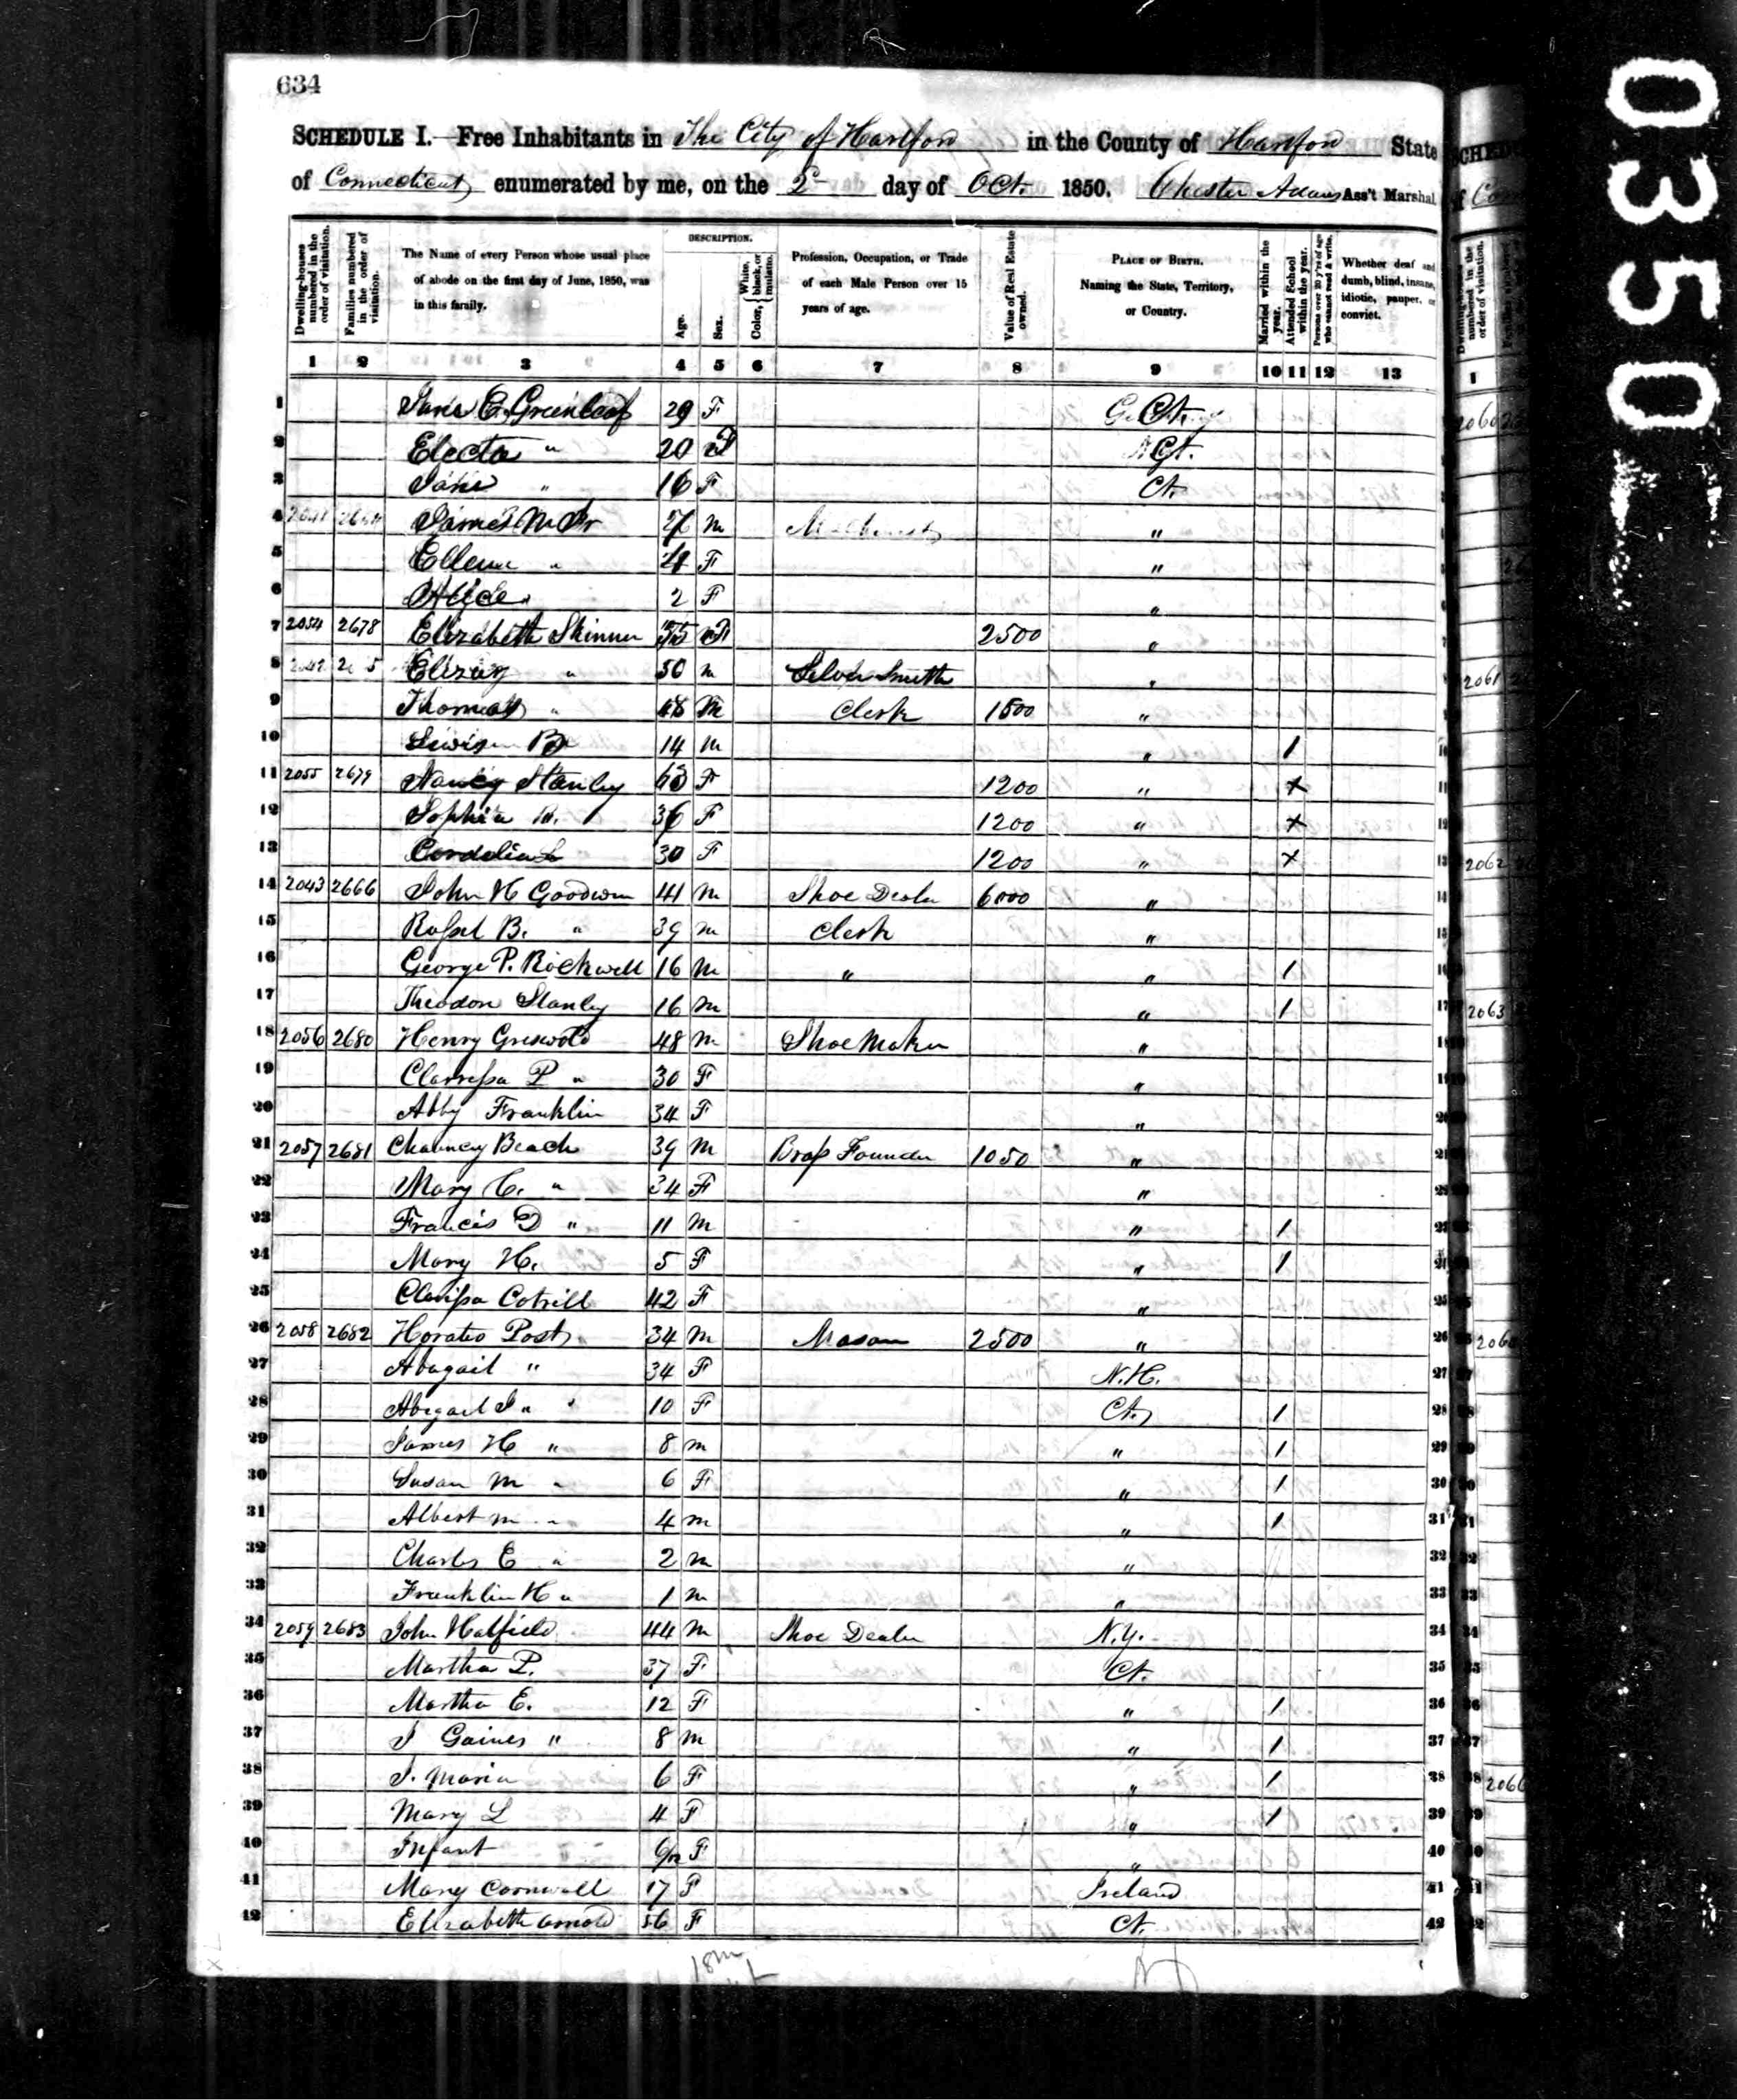 634
SCHEDULE I.—Free Inhabitants in The City of Hartford in the County of Hartford State
of Connecticut enumerated by me, on the 2d day of Oct. 1850. Chester Adams Ass't Marshal
Dwelling-houses numbered in the order of visitation. Families numbered in the order of visitation. The Name of every Person whose usual place of abode on the first day of June, 1850, was in this family. DESCRIPTION. Age. Sex. Color, { White, black, or mulatto. Profession, Occupation, or Trade of each Male Person over 15 years of age. Value of Real Estate owned. PLACE OF BIRTH. Naming the State, Territory, or Country. Married within the year. Attended School within the year. Persons over 20 y'rs of age who cannot read & write. Whether deaf and dumb, blind, insane, idiotic, pauper, or convict.
1 2 3 4 5 6 7 8 9 10 11 12 13
1 Jane C. Greenleaf 29 F Ct.
2 Electa " 20 F Ct.
3 Jane " 16 F Ct.
4 James M Jr M "
5 Ellen " F "
6 Alice " 2 F "
7 2054 2678 Elizabeth Skinner 55 F 2500 "
8 " 50 m Silver Smith "
9 Thomas " 48 M Clerk 1500 "
10 14 m " 1
11 2055 2679 Nancy Stanley F 1200 " x
12 Sophia M. 36 F 1200 " x
13 Cordelia L 30 F 1200 " x
14 2043 2666 John H Goodwin 41 m Shoe Dealer 6000 "
15 Russel B. " 39 m Clerk "
16 George P. Rockwell 16 m " " 1
17 Theodore Stanley 16 m " 1
18 2056 2680 Henry Griswold 48 m Shoe Maker "
19 Clarrissa P " 30 F "
20 Abby Franklin 34 F "
21 2057 2681 Chauncy Beach 39 M Brass Founder 1050 "
22 Mary C. " 34 F "
23 Francis D " 11 M " 1
24 Mary H. 5 F " 1
25 Clarissa Cotrill 42 F "
26 2058 2682 Horatio Post 34 M Mason 2500 "
27 Abagail " 34 F N.H.
28 Abigail J " 10 F Ct. 1
29 James H " 8 m " 1
30 Susan M " 6 F " 1
31 Albert M " 4 m " 1
32 Charles E " 2 m "
33 Franklin H " 1 m "
34 2059 2683 John Hatfield 44 m Shoe Dealer N.Y.
35 Martha P. 37 F Ct.
36 Martha E. 12 F " 1
37 J Gaines " 8 m " 1
38 J. Maria 6 F " 1
39 Mary L 4 F " 1
40 Infant 6/12 F "
41 Mary Cornwall 17 F Ireland
42 Elizabeth Arnold 56 F Ct.
18m
0350
2060
2061
2062
2063
2066